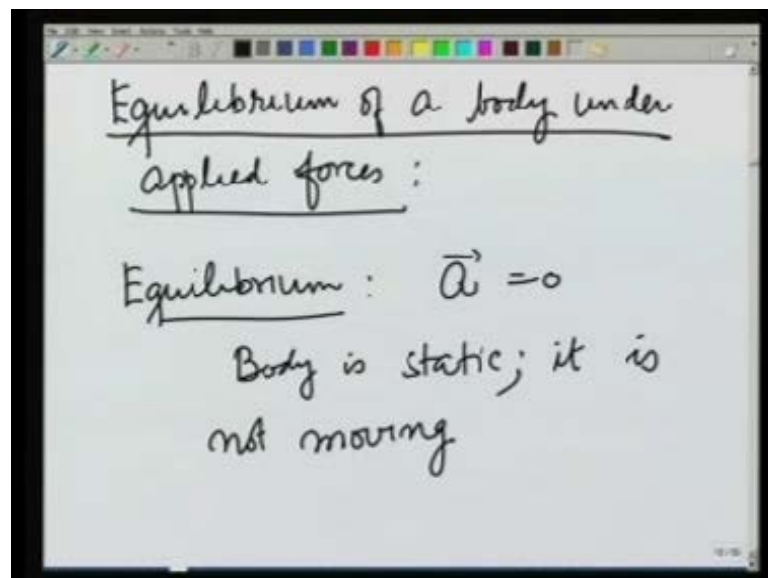 Equilibrium of a body under
applied forces :
Equilibrium : a⃗ = 0
Body is static; it is
not moving